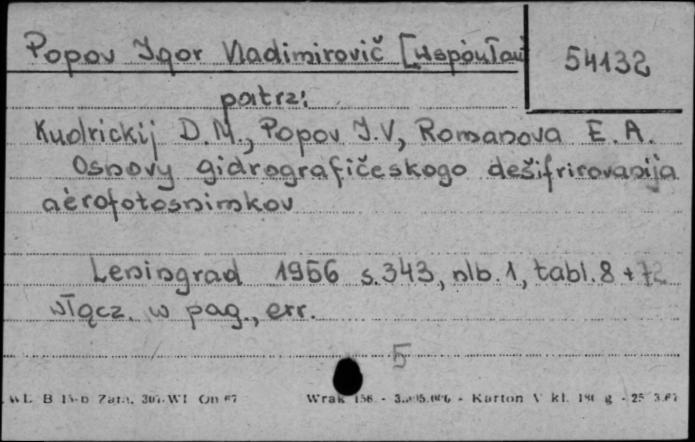 Popov Igor Vladimirovič [współau
54132
patrz:
Kudrickij D.M., Popov I.V, Romanova E.A.
Osnovy gidrografičeskogo dešifrirovanija
aèrofotosnimkov
Leningrad 1956 s.343, nlb.1, tabl.8 + 72
włącz. w pag., err.
5
Wrak 156. - Karton V kl. 180 g - 25 3.67